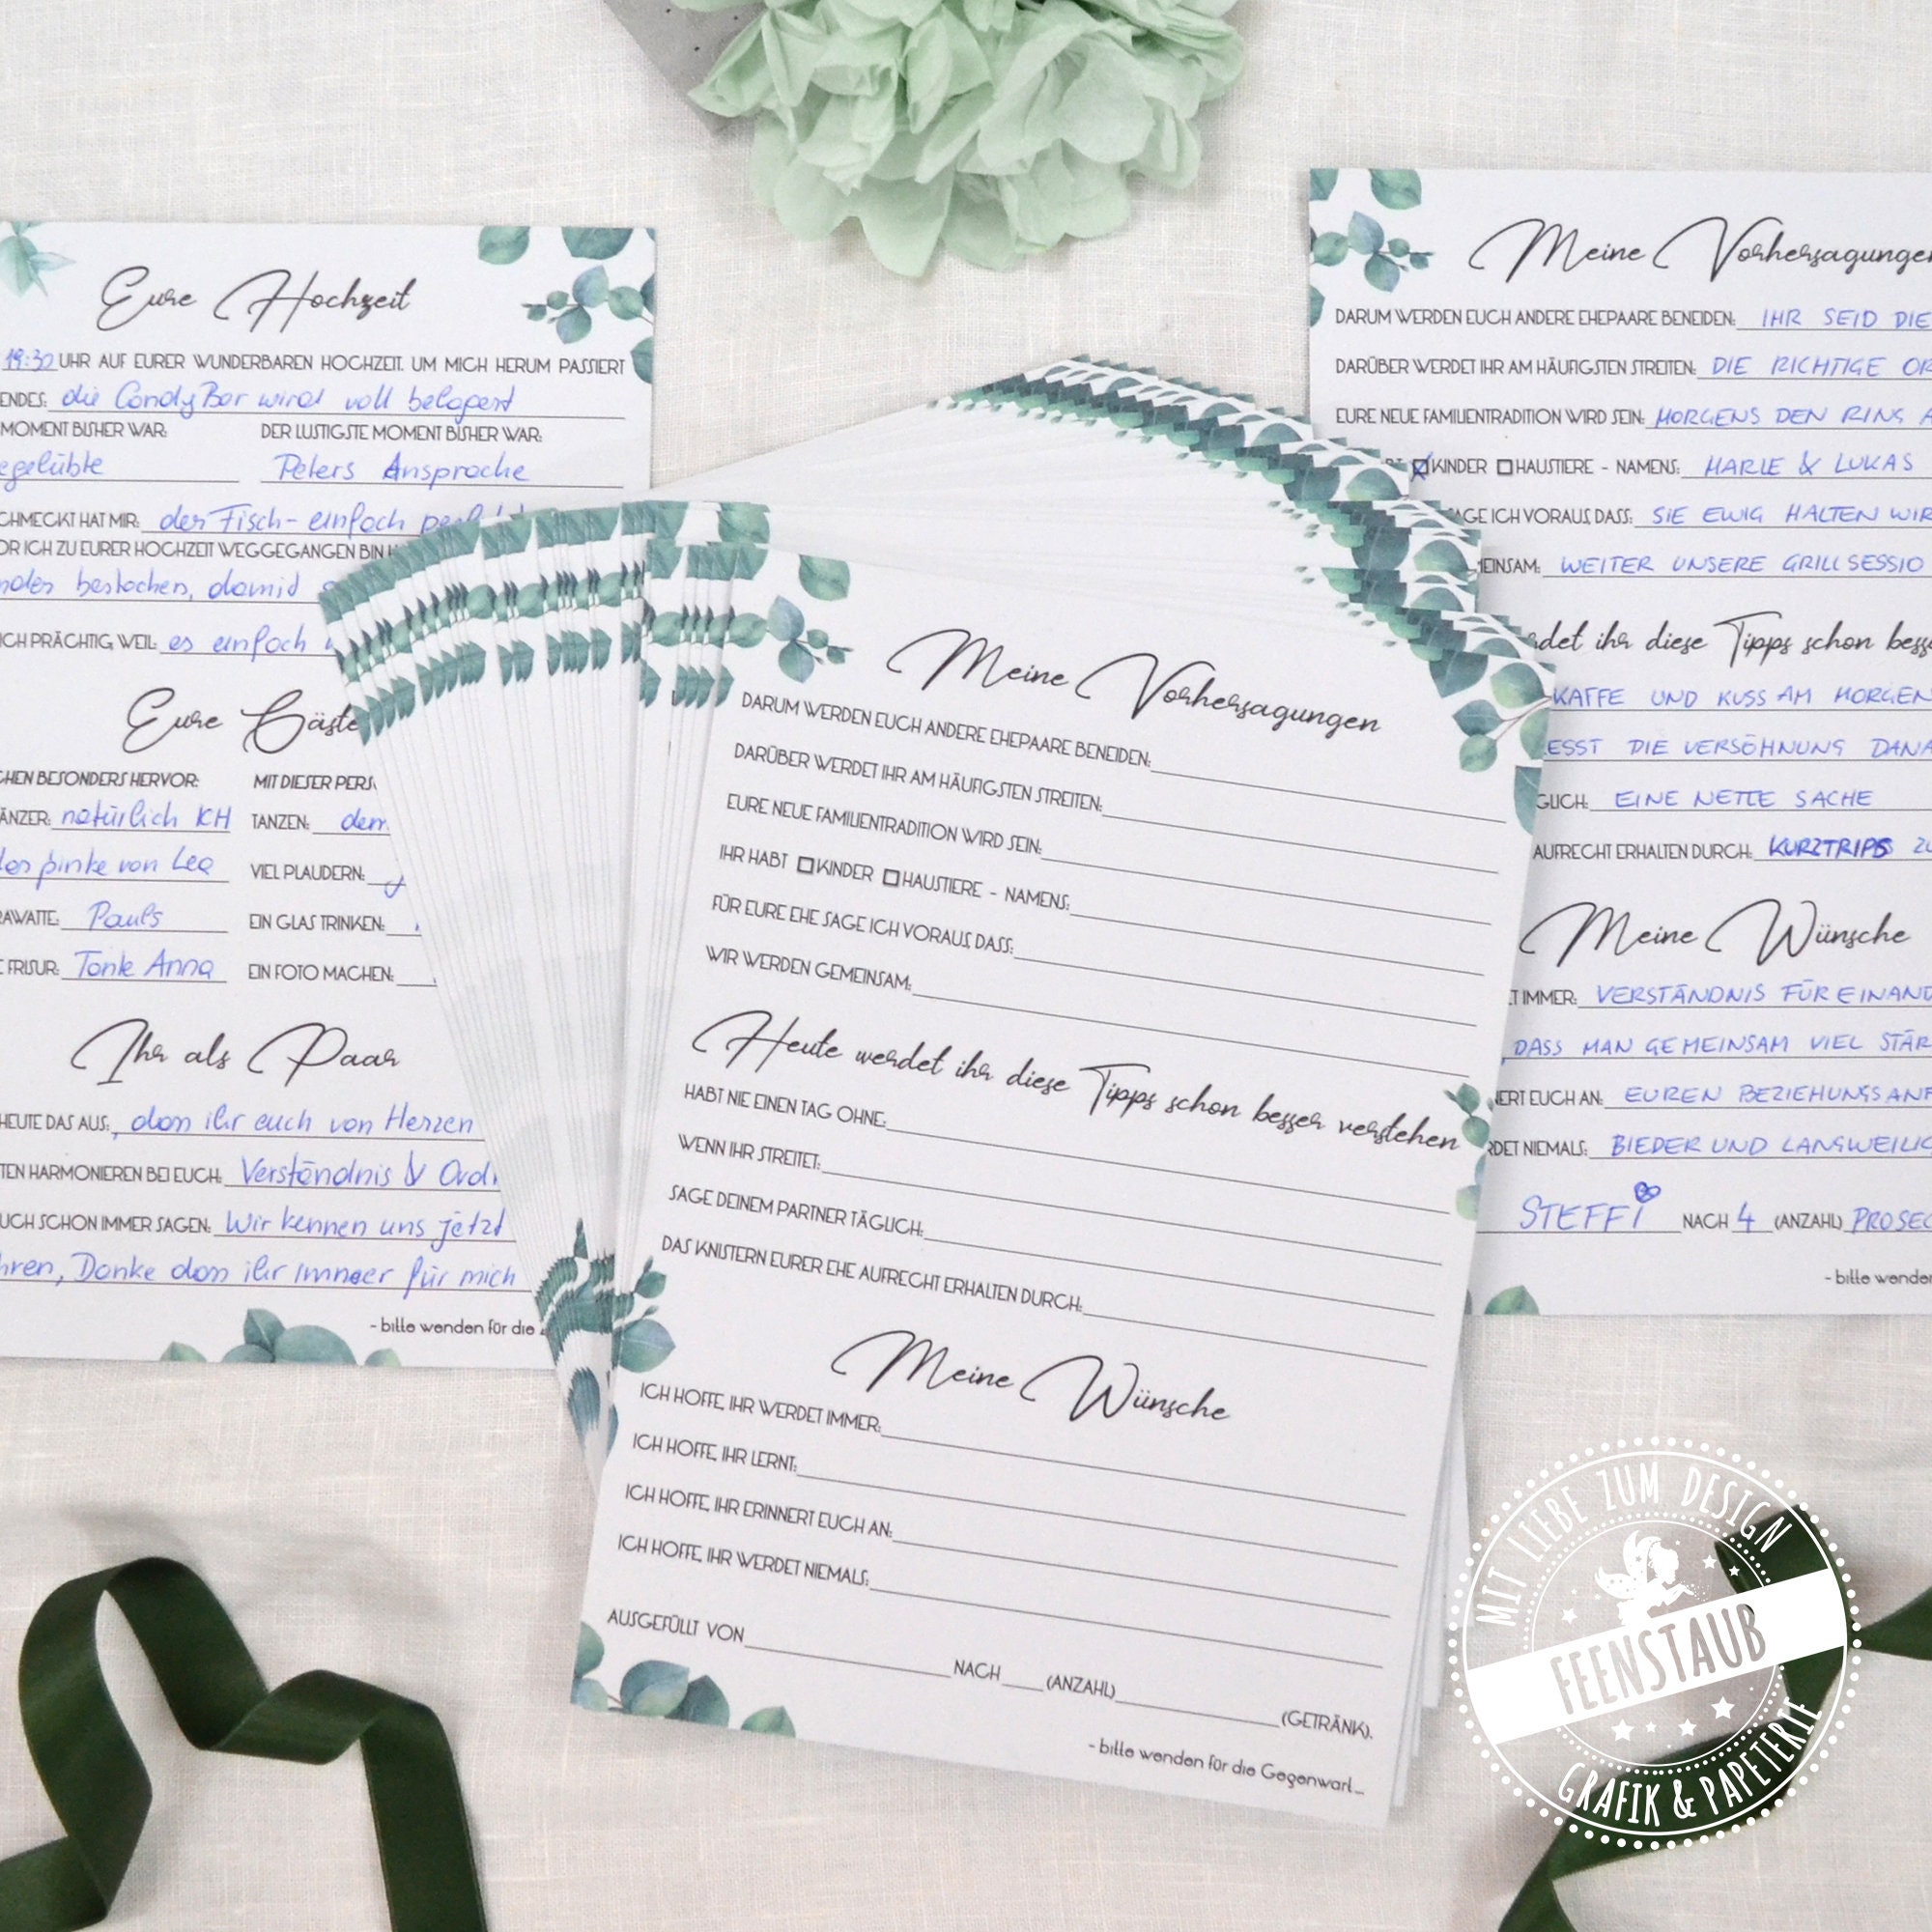 Eure Hochzeit
19:30 UHR AUF EURER WUNDERBAREN HOCHZEIT. UM MICH HERUM PASSIERT
ENDES: die CandyBar wird voll belagert
MOMENT BISHER WAR: DER LUSTIGSTE MOMENT BISHER WAR:
Peters Ansprache
CHMECKT HAT MIR: der Fisch - einfach
OR ICH ZU EURER HOCHZEIT WEGGEGANGEN BIN
bestochen, damit
ICH PRÄCHTIG, WEIL: es einfach
Eure Gäste
CHEN BESONDERS HERVOR: MIT DIESER PERS
ÄNZER: natürlich ICH TANZEN: dem
das pinke von Lea VIEL PLAUDERN:
RAWATTE: Pauls EIN GLAS TRINKEN:
E FRISUR: Tante Anna EIN FOTO MACHEN:
Ihr als Paar
HEUTE DAS AUS: , dass ihr euch von Herzen
TEN HARMONIEREN BEI EUCH: Verständnis &
UCH SCHON IMMER SAGEN: Wir kennen uns jetzt
hren, Danke dass ihr immer für mich
- bitte wenden für die
Meine Vorhersagungen
DARUM WERDEN EUCH ANDERE EHEPAARE BENEIDEN:
DARÜBER WERDET IHR AM HÄUFIGSTEN STREITEN:
EURE NEUE FAMILIENTRADITION WIRD SEIN:
IHR HABT KINDER HAUSTIERE - NAMENS:
FÜR EURE EHE SAGE ICH VORAUS, DASS:
WIR WERDEN GEMEINSAM:
Heute werdet ihr diese Tipps schon besser verstehen
HABT NIE EINEN TAG OHNE:
WENN IHR STREITET:
SAGE DEINEM PARTNER TÄGLICH:
DAS KNISTERN EURER EHE AUFRECHT ERHALTEN DURCH:
Meine Wünsche
ICH HOFFE, IHR WERDET IMMER:
ICH HOFFE, IHR LERNT:
ICH HOFFE, IHR ERINNERT EUCH AN:
ICH HOFFE, IHR WERDET NIEMALS:
AUSGEFÜLLT VON NACH (ANZAHL) (GETRÄNK).
- bitte wenden für die Gegenwart...
Meine Vorhersagungen
DARUM WERDEN EUCH ANDERE EHEPAARE BENEIDEN: IHR SEID DIE
DARÜBER WERDET IHR AM HÄUFIGSTEN STREITEN: DIE RICHTIGE OR
EURE NEUE FAMILIENTRADITION WIRD SEIN: MORGENS DEN RING A
KINDER HAUSTIERE - NAMENS: MARIE & LUKAS
AGE ICH VORAUS, DASS: SIE EWIG HALTEN WIR
MEINSAM: WEITER UNSERE GRILLSESSIO
rdet ihr diese Tipps schon bess
KAFFE UND KUSS AM MORGEN
ESST DIE VERSÖHNUNG DANA
GLICH: EINE NETTE SACHE
AUFRECHT ERHALTEN DURCH: KURZTRIPS ZU
Meine Wünsche
T IMMER: VERSTÄNDNIS FÜREINAND
, DASS MAN GEMEINSAM VIEL STÄR
NERT EUCH AN: EUREN BEZIEHUNGSANF
RDET NIEMALS: BIEDER UND LANGWEILIG
STEFFI NACH 4 (ANZAHL) PROSEC
- bitte wenden
MIT LIEBE ZUM DESIGN
FEENSTAUB
GRAFIK & PAPETERIE